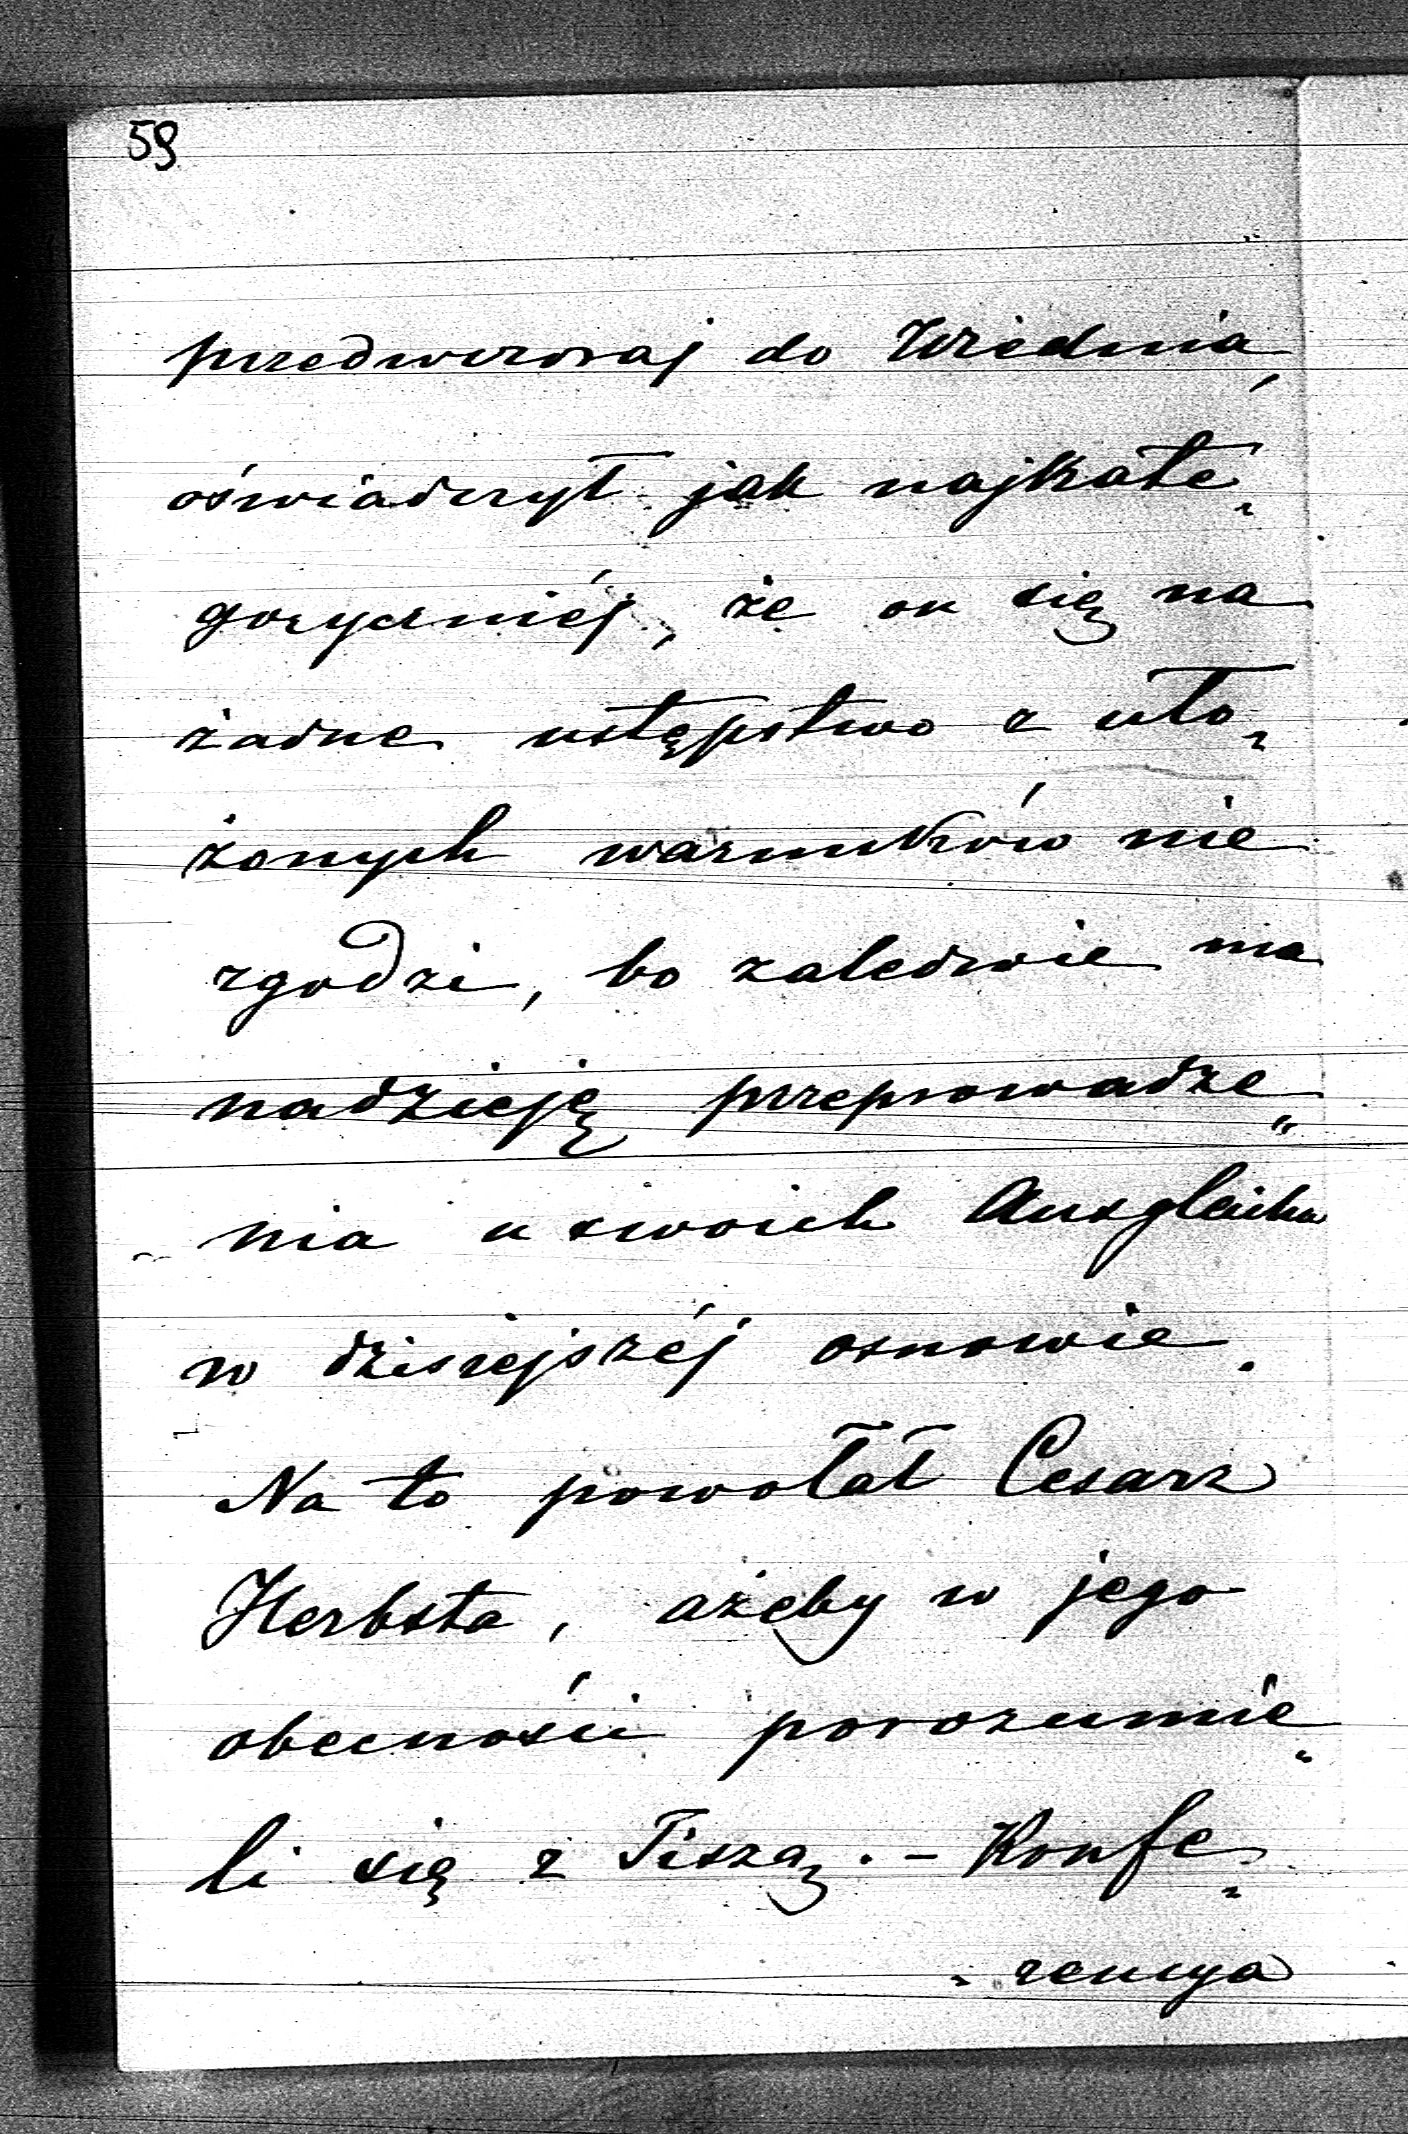 59
przedwczoraj do Wiednia,
oświadczył jak najkate„
goryczniéj, że on się na
żadne ustępstwo z uło„
żonych warunków nie
zgodzi, bo zaledwie ma
nadzieję przeprowadze„
nia u swoich Ausgleichu
w dzisiejszéj osnowie.
Na to powołał Cesarz
Herbsta, ażeby w jego
obecności porozumie„
li się z Tiszą. – Konfe„
„rencya